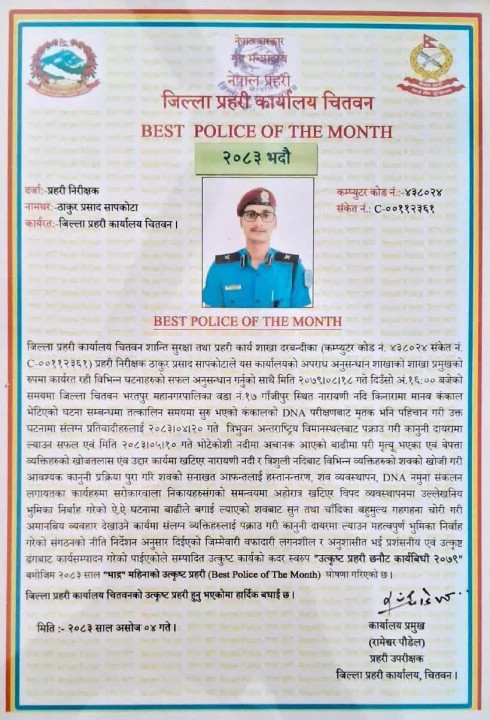 नेपाल सरकार
गृह मन्त्रालय
नेपाल प्रहरी
जिल्ला प्रहरी कार्यालय चितवन
BEST POLICE OF THE MONTH
२०८३ भदौ
दर्जा:-प्रहरी निरीक्षक
कम्प्युटर कोड नं.:-४३८०२४
नामथर:-ठाकुर प्रसाद सापकोटा
संकेत नं.: C-००११२३६१
कार्यरत:-जिल्ला प्रहरी कार्यालय चितवन ।
BEST POLICE OF THE MONTH
जिल्ला प्रहरी कार्यालय चितवन शान्ति सुरक्षा तथा प्रहरी कार्य शाखा दरबन्दीका (कम्प्युटर कोड नं. ४३८०२४ संकेत नं.
C-००११२३६१) प्रहरी निरीक्षक ठाकुर प्रसाद सापकोटाले यस कार्यालयको अपराध अनुसन्धान शाखाको शाखा प्रमुखको
रुपमा कार्यरत रही विभिन्न घटनाहरुको सफल अनुसन्धान गर्नुको साथै मिति २०७९।०८।१८ गते दिउँसो अं.१६:०० बजेको
समयमा जिल्ला चितवन भरतपुर महानगरपालिका वडा नं.१७ गाँजीपुर स्थित नारायणी नदि किनारामा मानव कंकाल
भेटिएको घटना सम्बन्धमा तत्कालिन समयमा सुरु भएको कंकालको DNA परीक्षणबाट मृतक भनि पहिचान गरी उक्त
घटनामा संलग्न प्रतिवादीहरुलाई २०८३।०४।२० गते त्रिभुवन अन्तराष्ट्रिय विमानस्थलबाट पक्राउ गरी कानुनी दायरामा
ल्याउन सफल एवं मिति २०८३।०५।१० गते भोटेकोशी नदीमा अचानक आएको बाढीमा परी मृत्यु भएका एवं वेपत्ता
व्यक्तिहरुको खोजतलास एंव उद्धार कार्यमा खटिएर नारायणी नदी र त्रिशुली नदिबाट विभिन्न व्यक्तिहरुको शवको खोजी गरी
आवश्यक कानुनी प्रक्रिया पुरा गरि शवको सनाखत आफन्तलाई हस्तान्तरण, शव व्यवस्थापन, DNA नमुना संकलन
लगायतका कार्यहरुमा सरोकारवाला निकायहरुसंगको समन्वयमा अहोरात्र खटिएर विपद व्यवस्थापनमा उल्लेखनिय
भुमिका निर्वाह गरेको ऐ.ऐ घटनामा बाढीले बगाई ल्याएको शवबाट सुन तथा चाँदिका बहमुल्य गहगहना चोरी गरी
अमानबिय व्यवहार देखाउने कार्यमा संलग्न व्यक्तिहरुलाई पक्राउ गरी कानुनी दायरमा ल्याउन महत्वपुर्ण भुमिका निर्वाह
गरेको संगठनको नीति निर्देशन अनुसार दिईएको जिम्मेवारी वफादारी लगनशील र अनुशासीत भई प्रशंसनीय एवं उत्कृष्ट
ढंगबाट कार्यसम्पादन गरेको पाईएकोले सम्पादित उत्कृष्ट कार्यको कदर स्वरुप "उत्कृष्ट प्रहरी छनौट कार्यबिधी २०७९"
बमोजिम २०८३ साल "भाद्र" महिनाको उत्कृष्ट प्रहरी (Best Police of The Month) घोषणा गरिएको छ ।
जिल्ला प्रहरी कार्यालय चितवनको उत्कृष्ट प्रहरी हुनु भएकोमा हार्दिक बधाई छ ।
मिति :- २०८३ साल असोज ०४ गते ।
कार्यालय प्रमुख
(रामेश्वर पौडेल)
प्रहरी उपरीक्षक
जिल्ला प्रहरी कार्यालय, चितवन ।